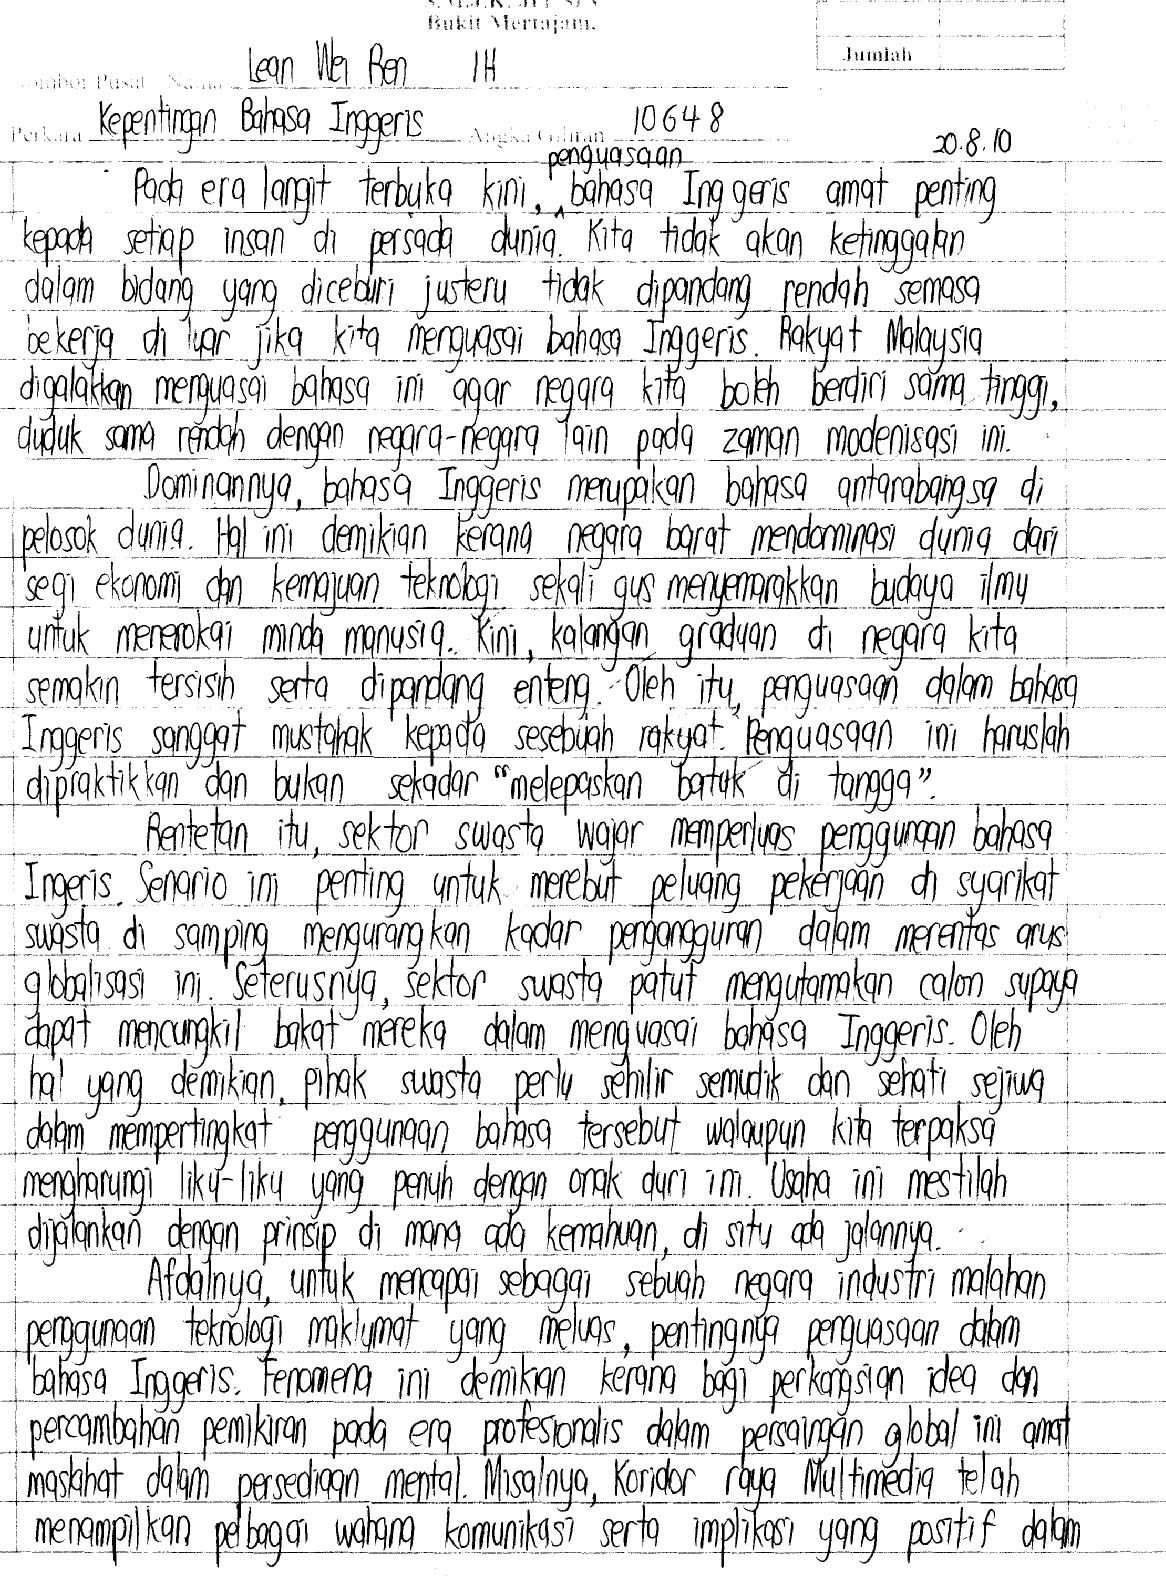 Bukit Mertajam.
Jumlah
Pusat Lean Wei Ren 1H
Perkara Kepentingan Bahasa Inggeris Angka Giliran 10648
20.8.10
penguasaan
Pada era langit terbuka kini, ^ bahasa Inggeris amat penting
kepada setiap insan di persada dunia. Kita tidak akan ketinggalan
dalam bidang yang diceburi justeru tidak dipandang rendah semasa
bekerja di luar jika kita menguasai bahasa Inggeris. Rakyat Malaysia
digalakkan menguasai bahasa ini agar negara kita boleh berdiri sama tinggi,
duduk sama rendah dengan negara-negara lain pada zaman modenisasi ini.
Dominannya, bahasa Inggeris merupakan bahasa antarabangsa di
pelosok dunia. Hal ini demikian kerana negara barat mendominasi dunia dari
segi ekonomi dan kemajuan teknologi sekali gus menyemarakkan budaya ilmu
untuk menerokai minda manusia. Kini, kalangan graduan di negara kita
semakin tersisih serta dipandang enteng. Oleh itu, penguasaan dalam bahasa
Inggeris sanggat mustahak kepada sesebuah rakyat. Penguasaan ini haruslah
dipraktikkan dan bukan sekadar "melepaskan batuk di tangga".
Rentetan itu, sektor swasta wajar memperluas penggunaan bahasa
Ingeris. Senario ini penting untuk merebut peluang pekerjaan di syarikat
swasta di samping mengurangkan kadar pengangguran dalam merentas arus
globalisasi ini. Seterusnya, sektor swasta patut mengutamakan calon supaya
dapat mencungkil bakat mereka dalam menguasai bahasa Inggeris. Oleh
hal yang demikian, pihak swasta perlu sehilir semudik dan sehati sejiwa
dalam mempertingkat penggunaan bahasa tersebut walaupun kita terpaksa
mengharungi liku-liku yang penuh dengan onak duri ini. Usaha ini mestilah
dijalankan dengan prinsip di mana ada kemahuan, di situ ada jalannya.
Afdalnya, untuk mencapai sebagai sebuah negara industri malahan
penggunaan teknologi maklumat yang meluas, pentingnya penguasaan dalam
bahasa Inggeris. Fenomena ini demikian kerana bagi perkongsian idea dan
percambahan pemikiran pada era profesionalis dalam persaingan global ini amat
maslahat dalam persediaan mental. Misalnya, Koridor raya Multimedia telah
menampilkan pelbagai wahana komunikasi serta implikasi yang positif dalam